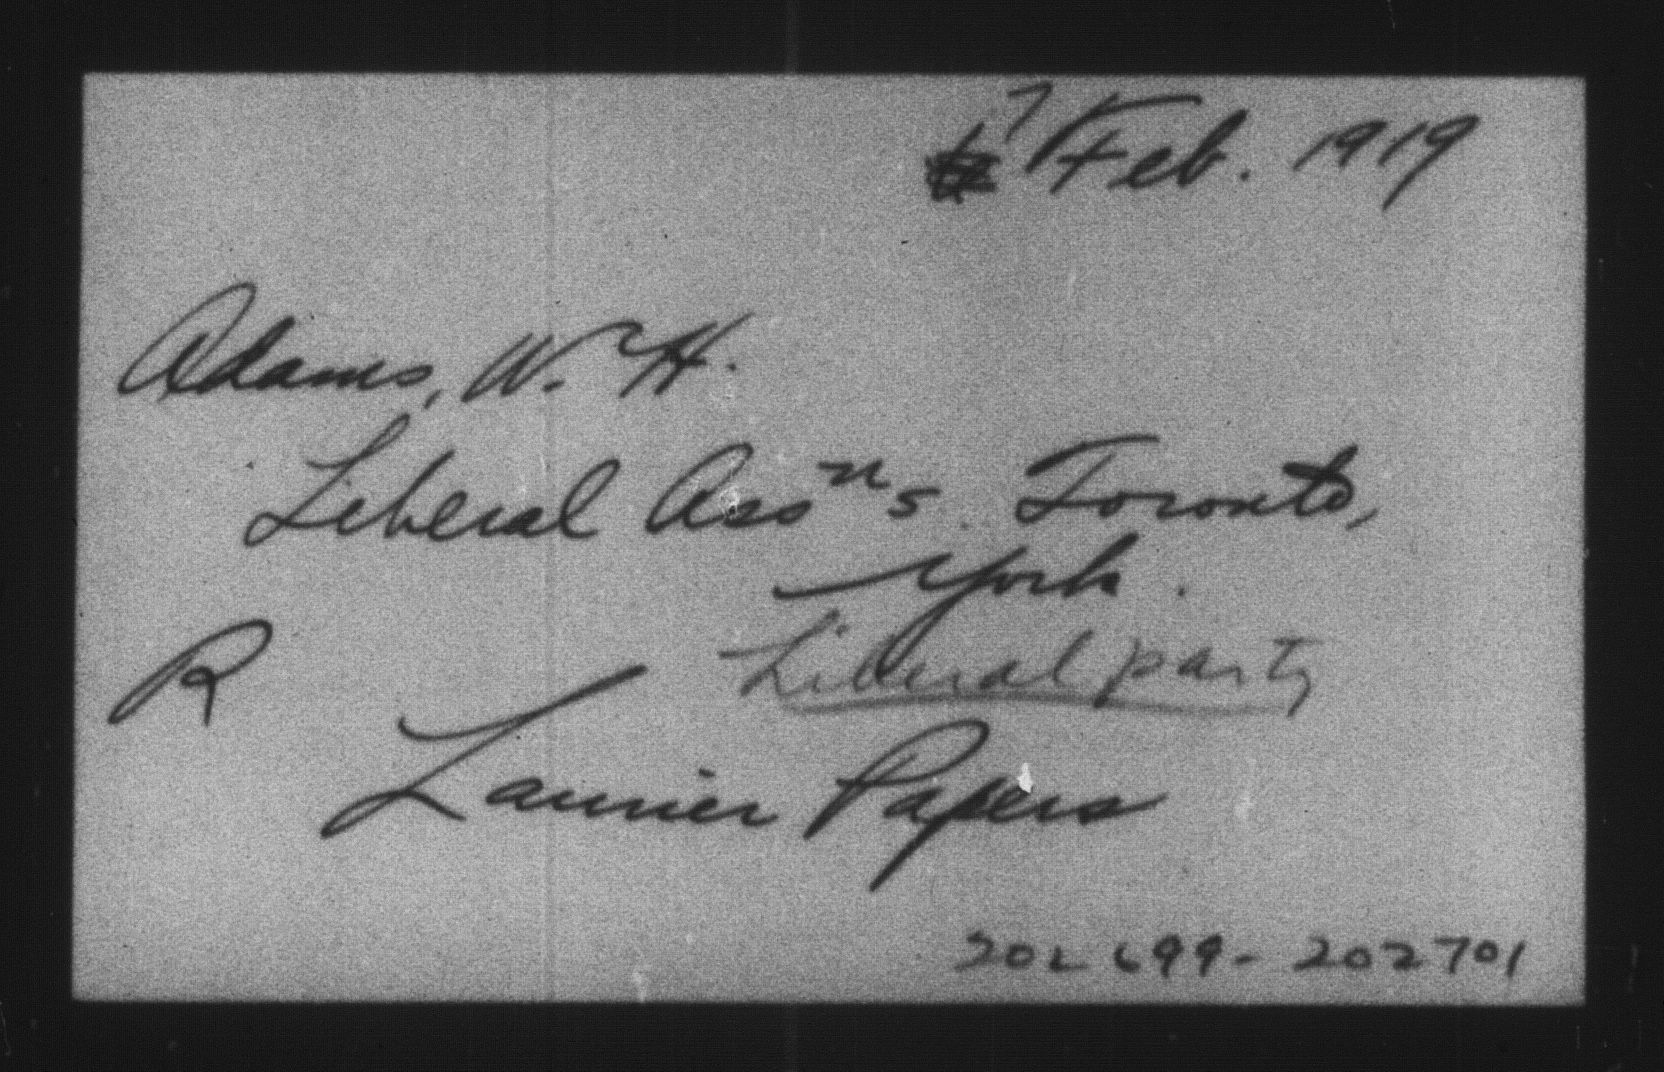 7 Feb. 1919
Adams, W. H.
Liberal Assⁿs. Toronto,
York.
Liberal party
R
Laurier Papers
202699-202701